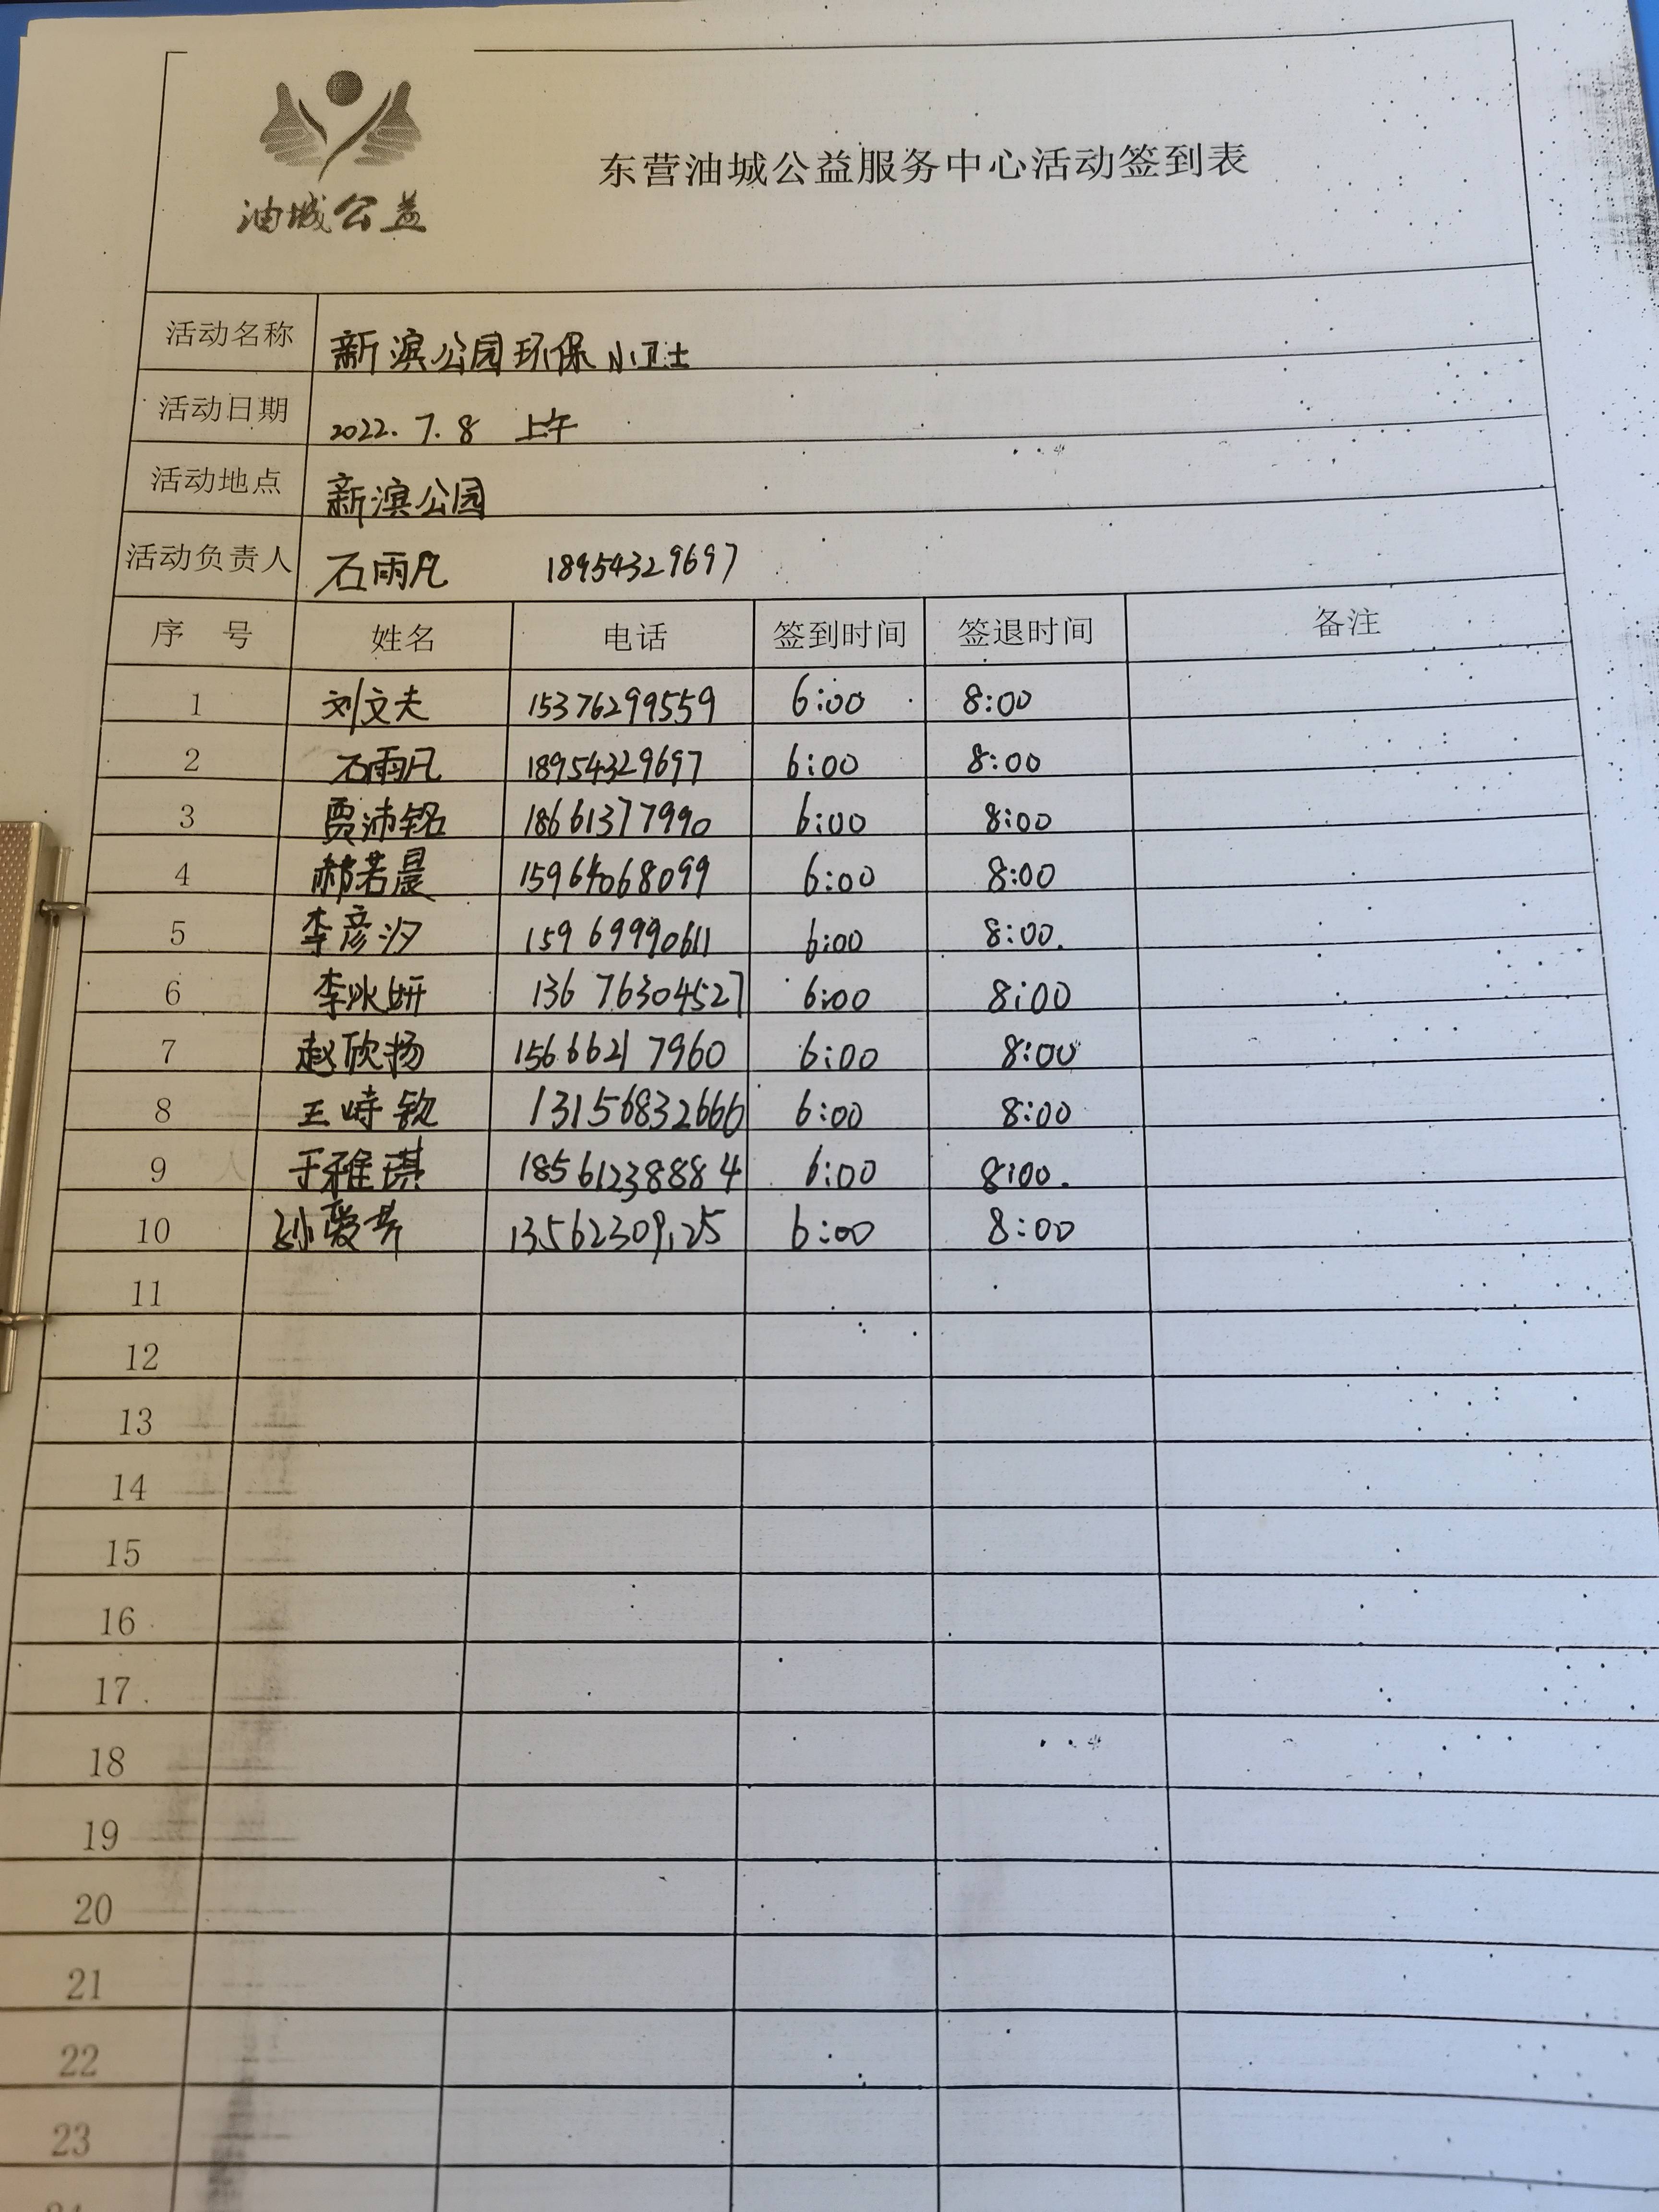 油城公益
东营油城公益服务中心活动签到表
活动名称 新滨公园环保小卫士
活动日期 2022.7.8 上午
活动地点 新滨公园
活动负责人 石雨凡 18954329697
序 号 姓名 电话 签到时间 签退时间 备注
1 刘文夫 15376299559 6:00 8:00
2 石雨凡 18954329697 6:00 8:00
3 贾沛铭 18661377990 6:00 8:00
4 郝若晨 15964068099 6:00 8:00
5 李彦汐 15969990611 6:00 8:00.
6 李冰妍 13676304527 6:00 8:00
7 赵欣扬 15666217960 6:00 8:00
8 王峙钦 13156832666 6:00 8:00
9 于雅琪 18561238884 6:00 8:00.
10 孙爱芳 13562309125 6:00 8:00
11
12
13
14
15
16
17
18
19
20
21
22
23